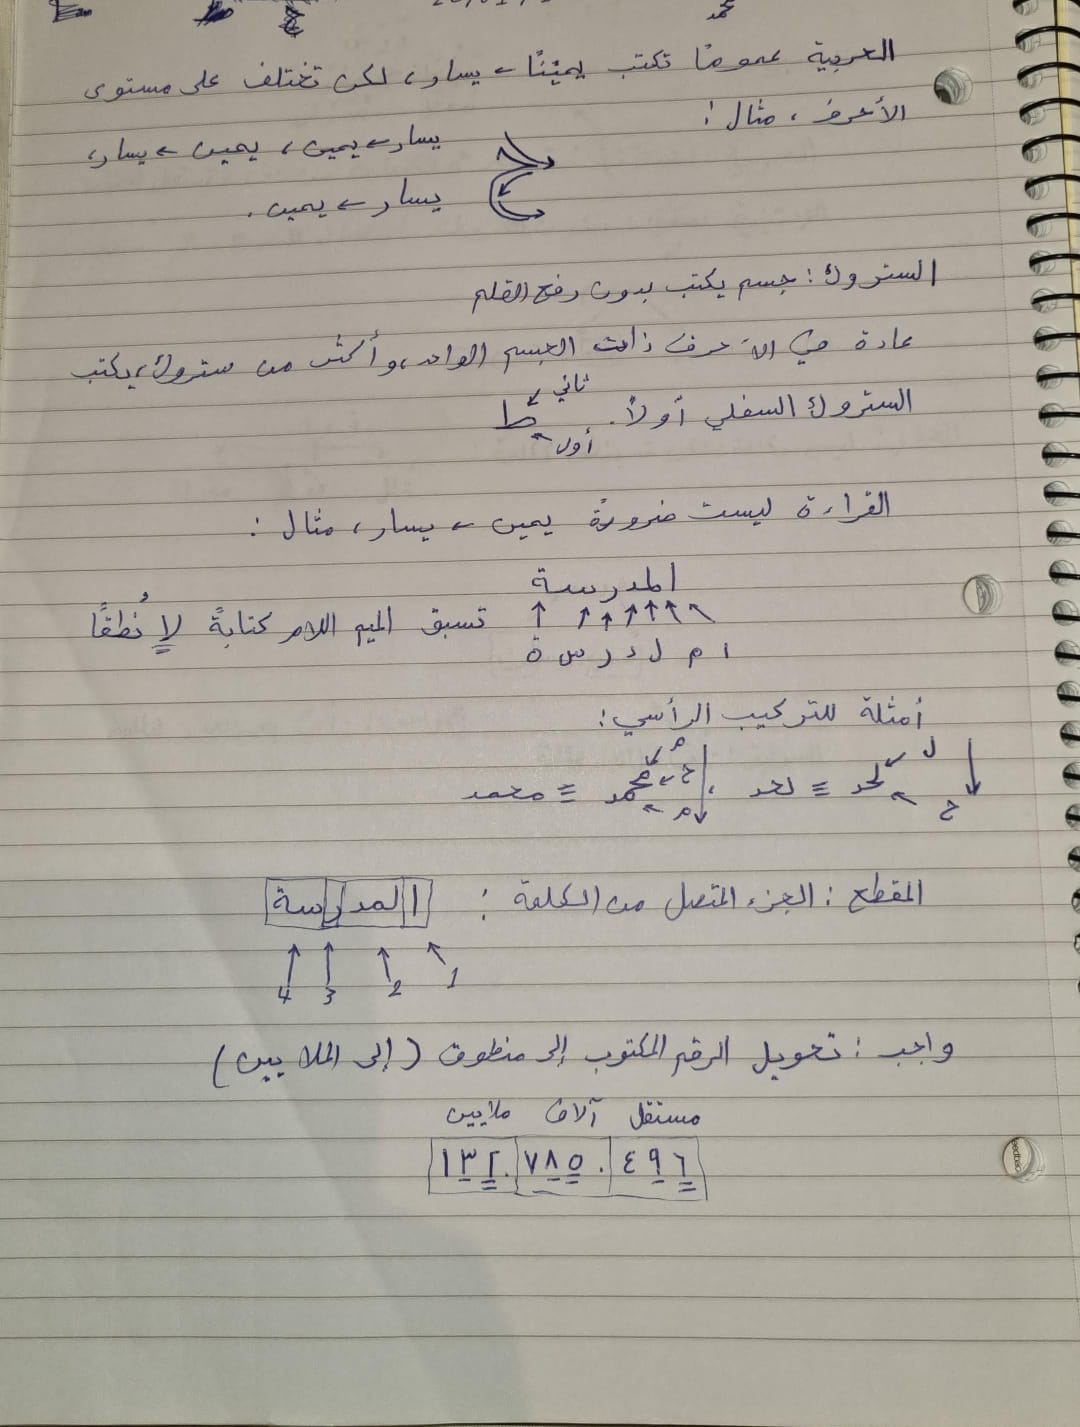 العربية عمومًا تكتب يمينًا ← يسار، لكن تختلف على مستوى
الأحرف، مثال:
ح يسار ← يمين، يمين ← يسار،
يسار ← يمين.
الستروك: جسم يكتب بدون رفع القلم
عادة في الأحرف ذات الجسم الواحد، وأكثر من ستروك، يكتب
الستروك السفلي أولاً. ط ثاني
أول
القراءة ليست ضرورةً يمين ← يسار، مثال:
المدرسة
تسبق الميم اللام كتابةً لا نُطقًا
ا م ل د ر س ة
أمثلة للتركيب الرأسي:
ل ح لحد ≡ لحد، م ح م محمد ≡ محمد
المقطع: الجزء المتصل من الكلمة: المدرسة
1 2 3 4
واجب: تحويل الرقم المكتوب إلى منطوق (إلى الملايين)
مستقل آلاف ملايين
١٣٢.٧٨٥.٤٩٦